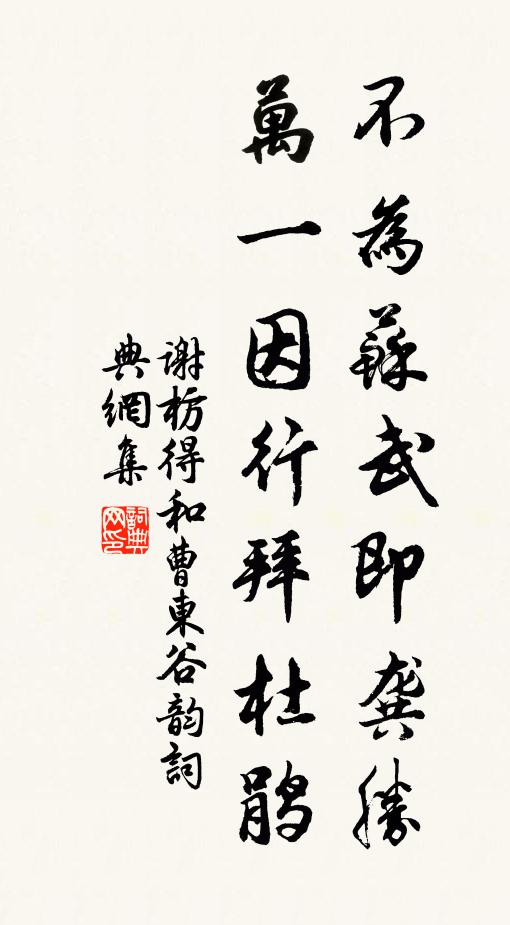 不為蘇武即龔勝
萬一因行拜杜鵑
谢枋得和曹東谷韵詞
典網集
詞典
网印